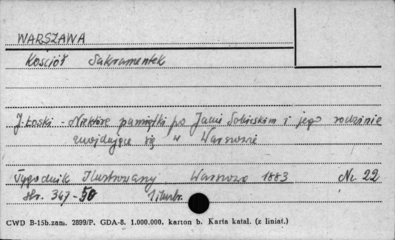 WARSZAWA
Kościół Sakramentek
J. Łoski - Niektóre pamiątki po Janie Sobieskim i jego rodzinie
znajdujące się w Warszawie
Tygodnik Ilustrowany Warszawa 1883 Nr. 22
str. 347-50
CWD B-15b.zam. 2899/P. GDA-8. 1.000.000. karton b. Karta katal. (z liniat.)